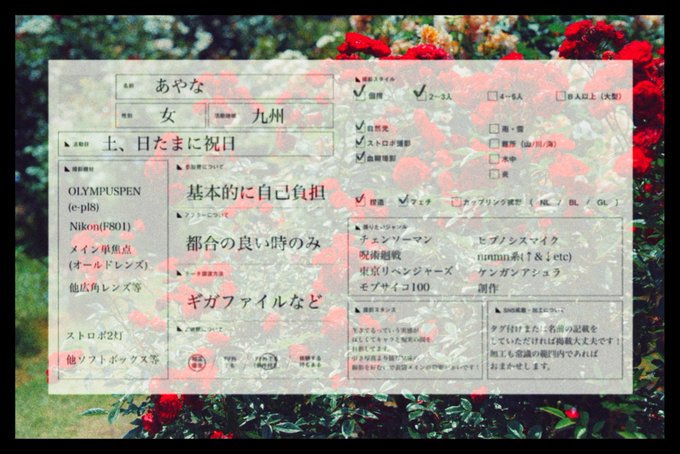 名前 あやな
性別 女 活動地域 九州
活動日 土、日たまに祝日
撮影機材
OLYMPUSPEN
(e-pl8)
Nikon(F801)
メイン単焦点
(オールドレンズ)
他広角レンズ等
ストロボ2灯
他ソフトボックス等
参加費について
基本的に自己負担
アフターについて
都合の良い時のみ
データ譲渡方法
ギガファイルなど
ご依頼について
撮影スタイル
個撮 2〜3人 4〜6人 8人以上(大型)
自然光 雨・雪
ストロボ撮影 難所(山/川/海)
血糊撮影 水中
炎
捏造 フェチ カップリング撮影 ( NL / BL / GL )
撮りたいジャンル
チェンソーマン
呪術廻戦
東京リベンジャーズ
モブサイコ100
ヒプノシスマイク
nmmn系(↑&↓etc)
ケンガンアシュラ
創作
撮影スタンス
SNS掲載・加工について
タグ付けまたは名前の記載を
していただければ掲載大丈夫です!
加工も常識の範囲内であれば
おまかせします。